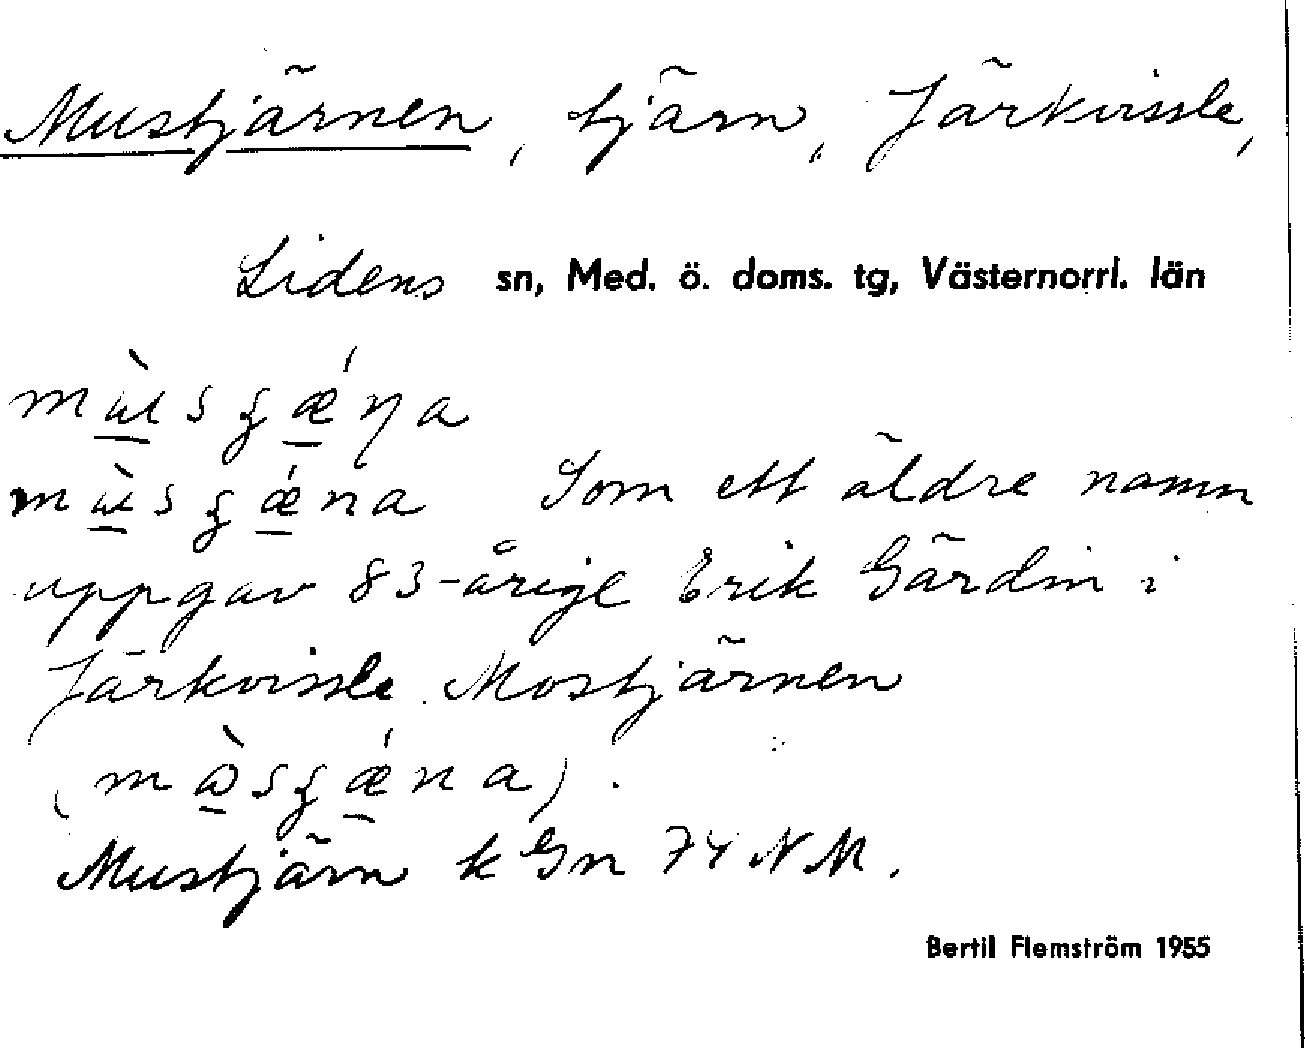 Mustjärnen, tjärn, Järkvissle,
Lidens sn, Med. ö. doms. tg, Västernorrl. län
Som ett äldre namn
uppgav 83-årige Erik Gärdin i
Järkvissle Mostjärnen
Mustjärn k Gn 74 NM.
Bertil Flemström 1955